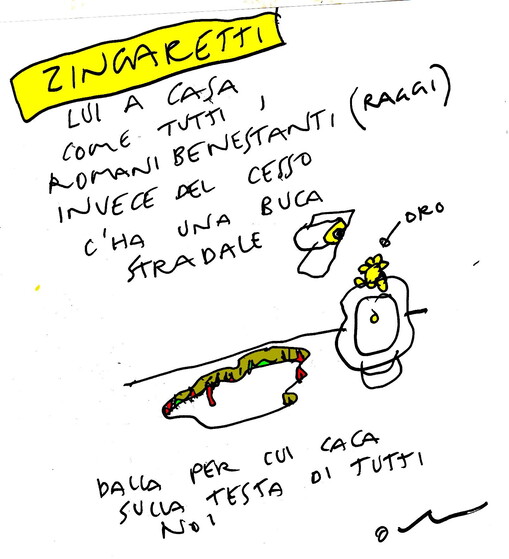 ZINGARETTI
LUI A CASA
COME TUTTI I
ROMANI BENESTANTI (RAGGI)
INVECE DEL CESSO
C'HA UNA BUCA
STRADALE
ORO
DALLA PER CUI CACA
SULLA TESTA DI TUTTI
NOI